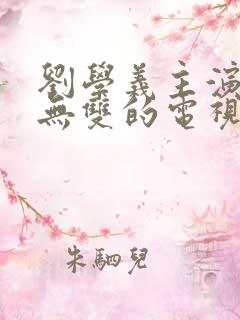 劉學義主演
無雙的電視
朱駟兒